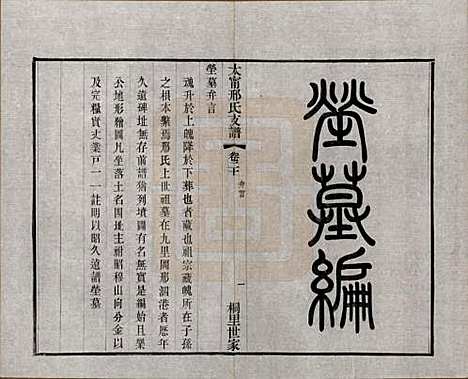 塋墓編
太甯邢氏支譜 卷二十 弁言 一 桐里世家
塋墓弁言
魂升於上魄降於下葬也者藏也祖宗藏魄所在子孫
之根本繫焉邢氏上世祖墓在九里園邢泗港者歷年
久遠碑址無存前譜猶列墳圖有名無實是編始去樂
公地形繪圖凡坐落土名四址主祔昭穆山向分金以
及完糧實丈業戶一一註明以昭久遠譜塋墓